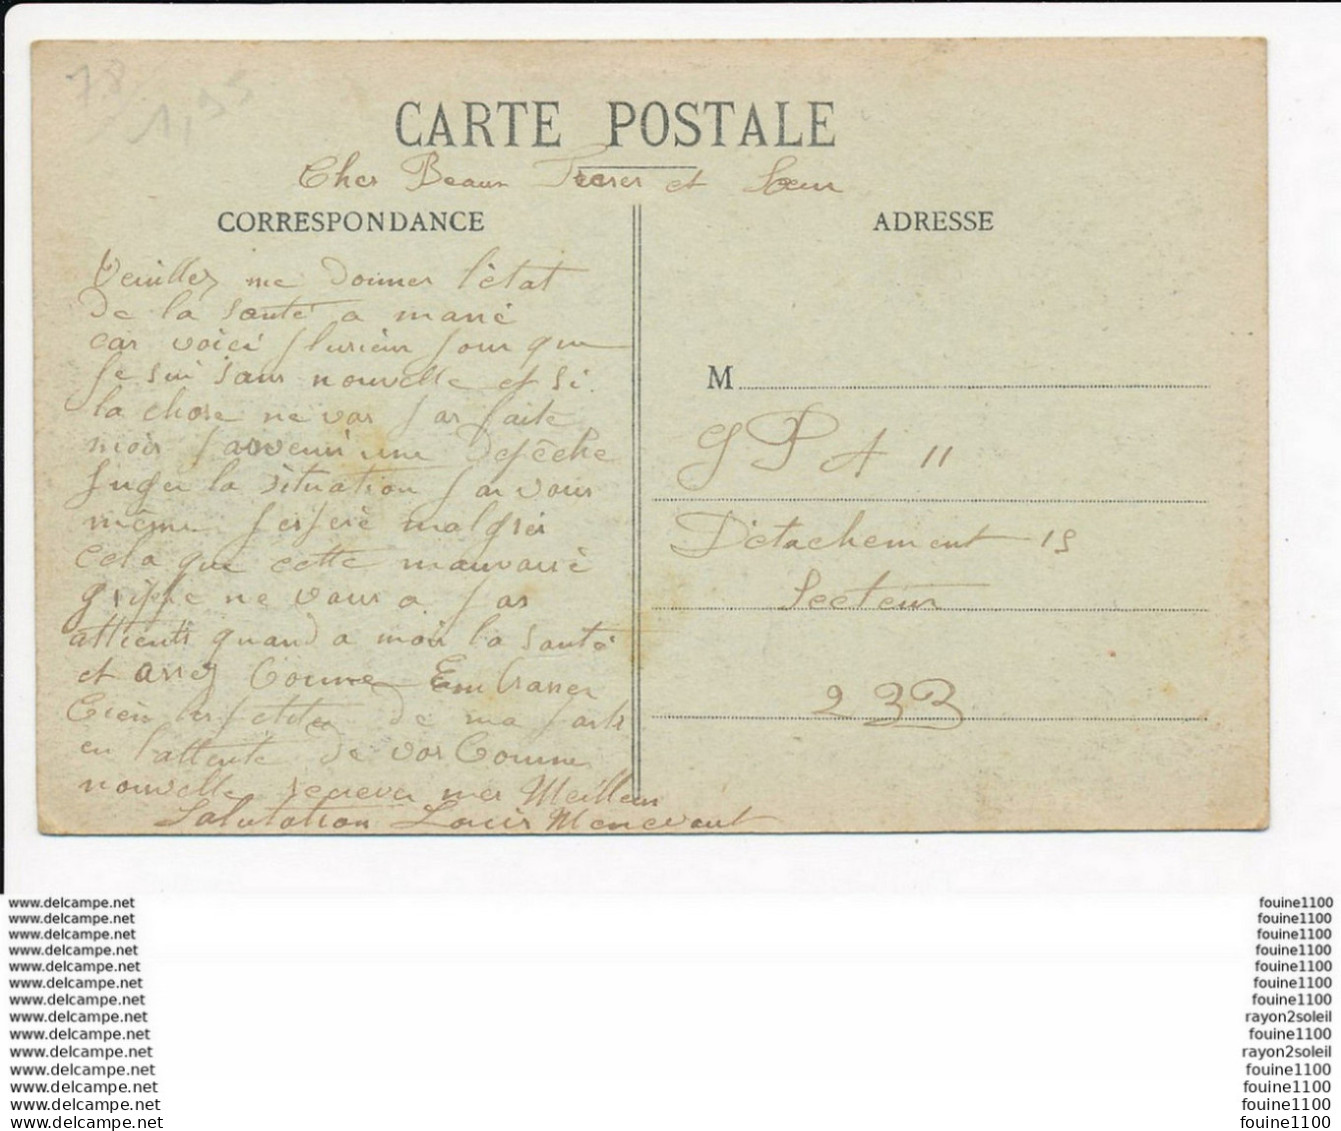 78
1,95
CARTE POSTALE
Cher Beaux Freres et Sœur
CORRESPONDANCE
ADRESSE
Veuillez me donner l'état
de la santé a marie
car voici plusieur jour que
je sui sans nouvelle et si
la chose ne vas pas faite
moi parvenir une depêche
juger la situation par vous
même jespere malgrer
cela que cette mauvaise
grippe ne vous a pas
attients quand a moi la santé
et assez bonne Embrasser
bien les petites de ma part
en l'attente de vos bonne
nouvelle recever mes Meilleur
Salutation Louis
M
G P A 11
Détachement 15
Secteur
233
www.delcampe.net
www.delcampe.net
www.delcampe.net
www.delcampe.net
www.delcampe.net
www.delcampe.net
www.delcampe.net
www.delcampe.net
www.delcampe.net
www.delcampe.net
www.delcampe.net
www.delcampe.net
www.delcampe.net
www.delcampe.net
fouine1100
fouine1100
fouine1100
fouine1100
fouine1100
fouine1100
fouine1100
rayon2soleil
fouine1100
rayon2soleil
fouine1100
fouine1100
fouine1100
fouine1100